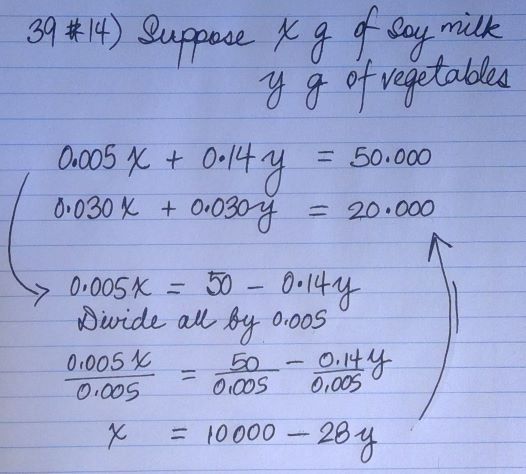 39 #14) Suppose x g of soy milk
y g of vegetables
0.005 x + 0.14 y = 50.000
0.030 x + 0.030 y = 20.000
0.005 x = 50 - 0.14 y
Divide all by 0.005
0.005 x / 0.005 = 50 / 0.005 - 0.14 y / 0.005
x = 10000 - 28 y